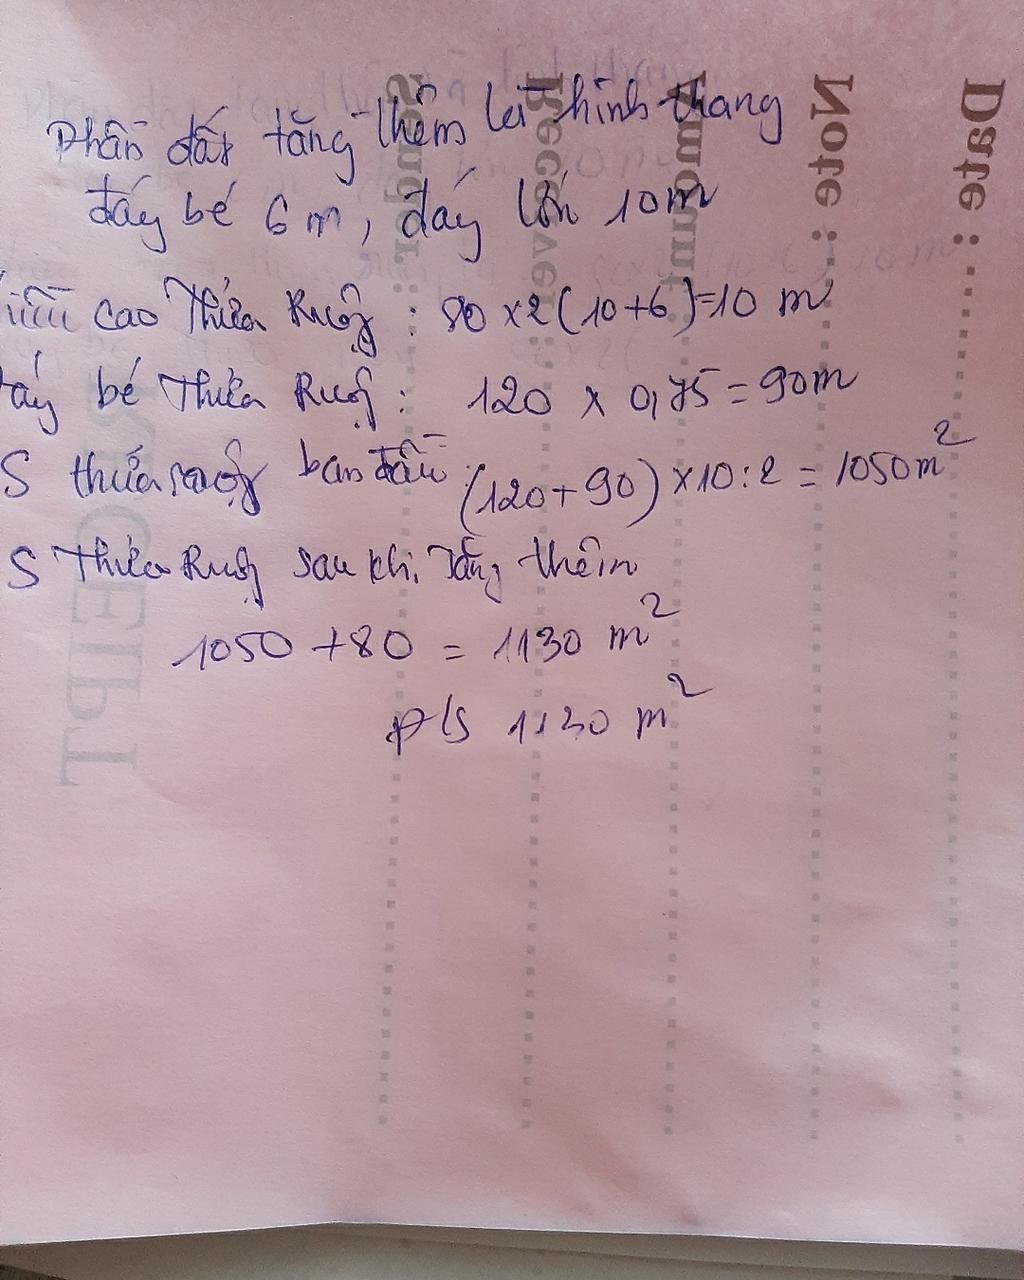 Phần đất tăng thêm là hình thang
đáy bé 6 m, đáy lớn 10 m
cao thửa Ruộng : 80 x 2 (10+6)=10 m
đáy bé Thửa Ruộng : 120 x 0,75 = 90m
S thửa ruộng ban đầu : (120+90) x 10 : 2 = 1050m²
S Thửa Ruộng sau khi tăng thêm
1050 + 80 = 1130 m²
Đ/S 1130 m²
Date :
Note :
Amount :
Receiver :
Sender :
RECEIPT